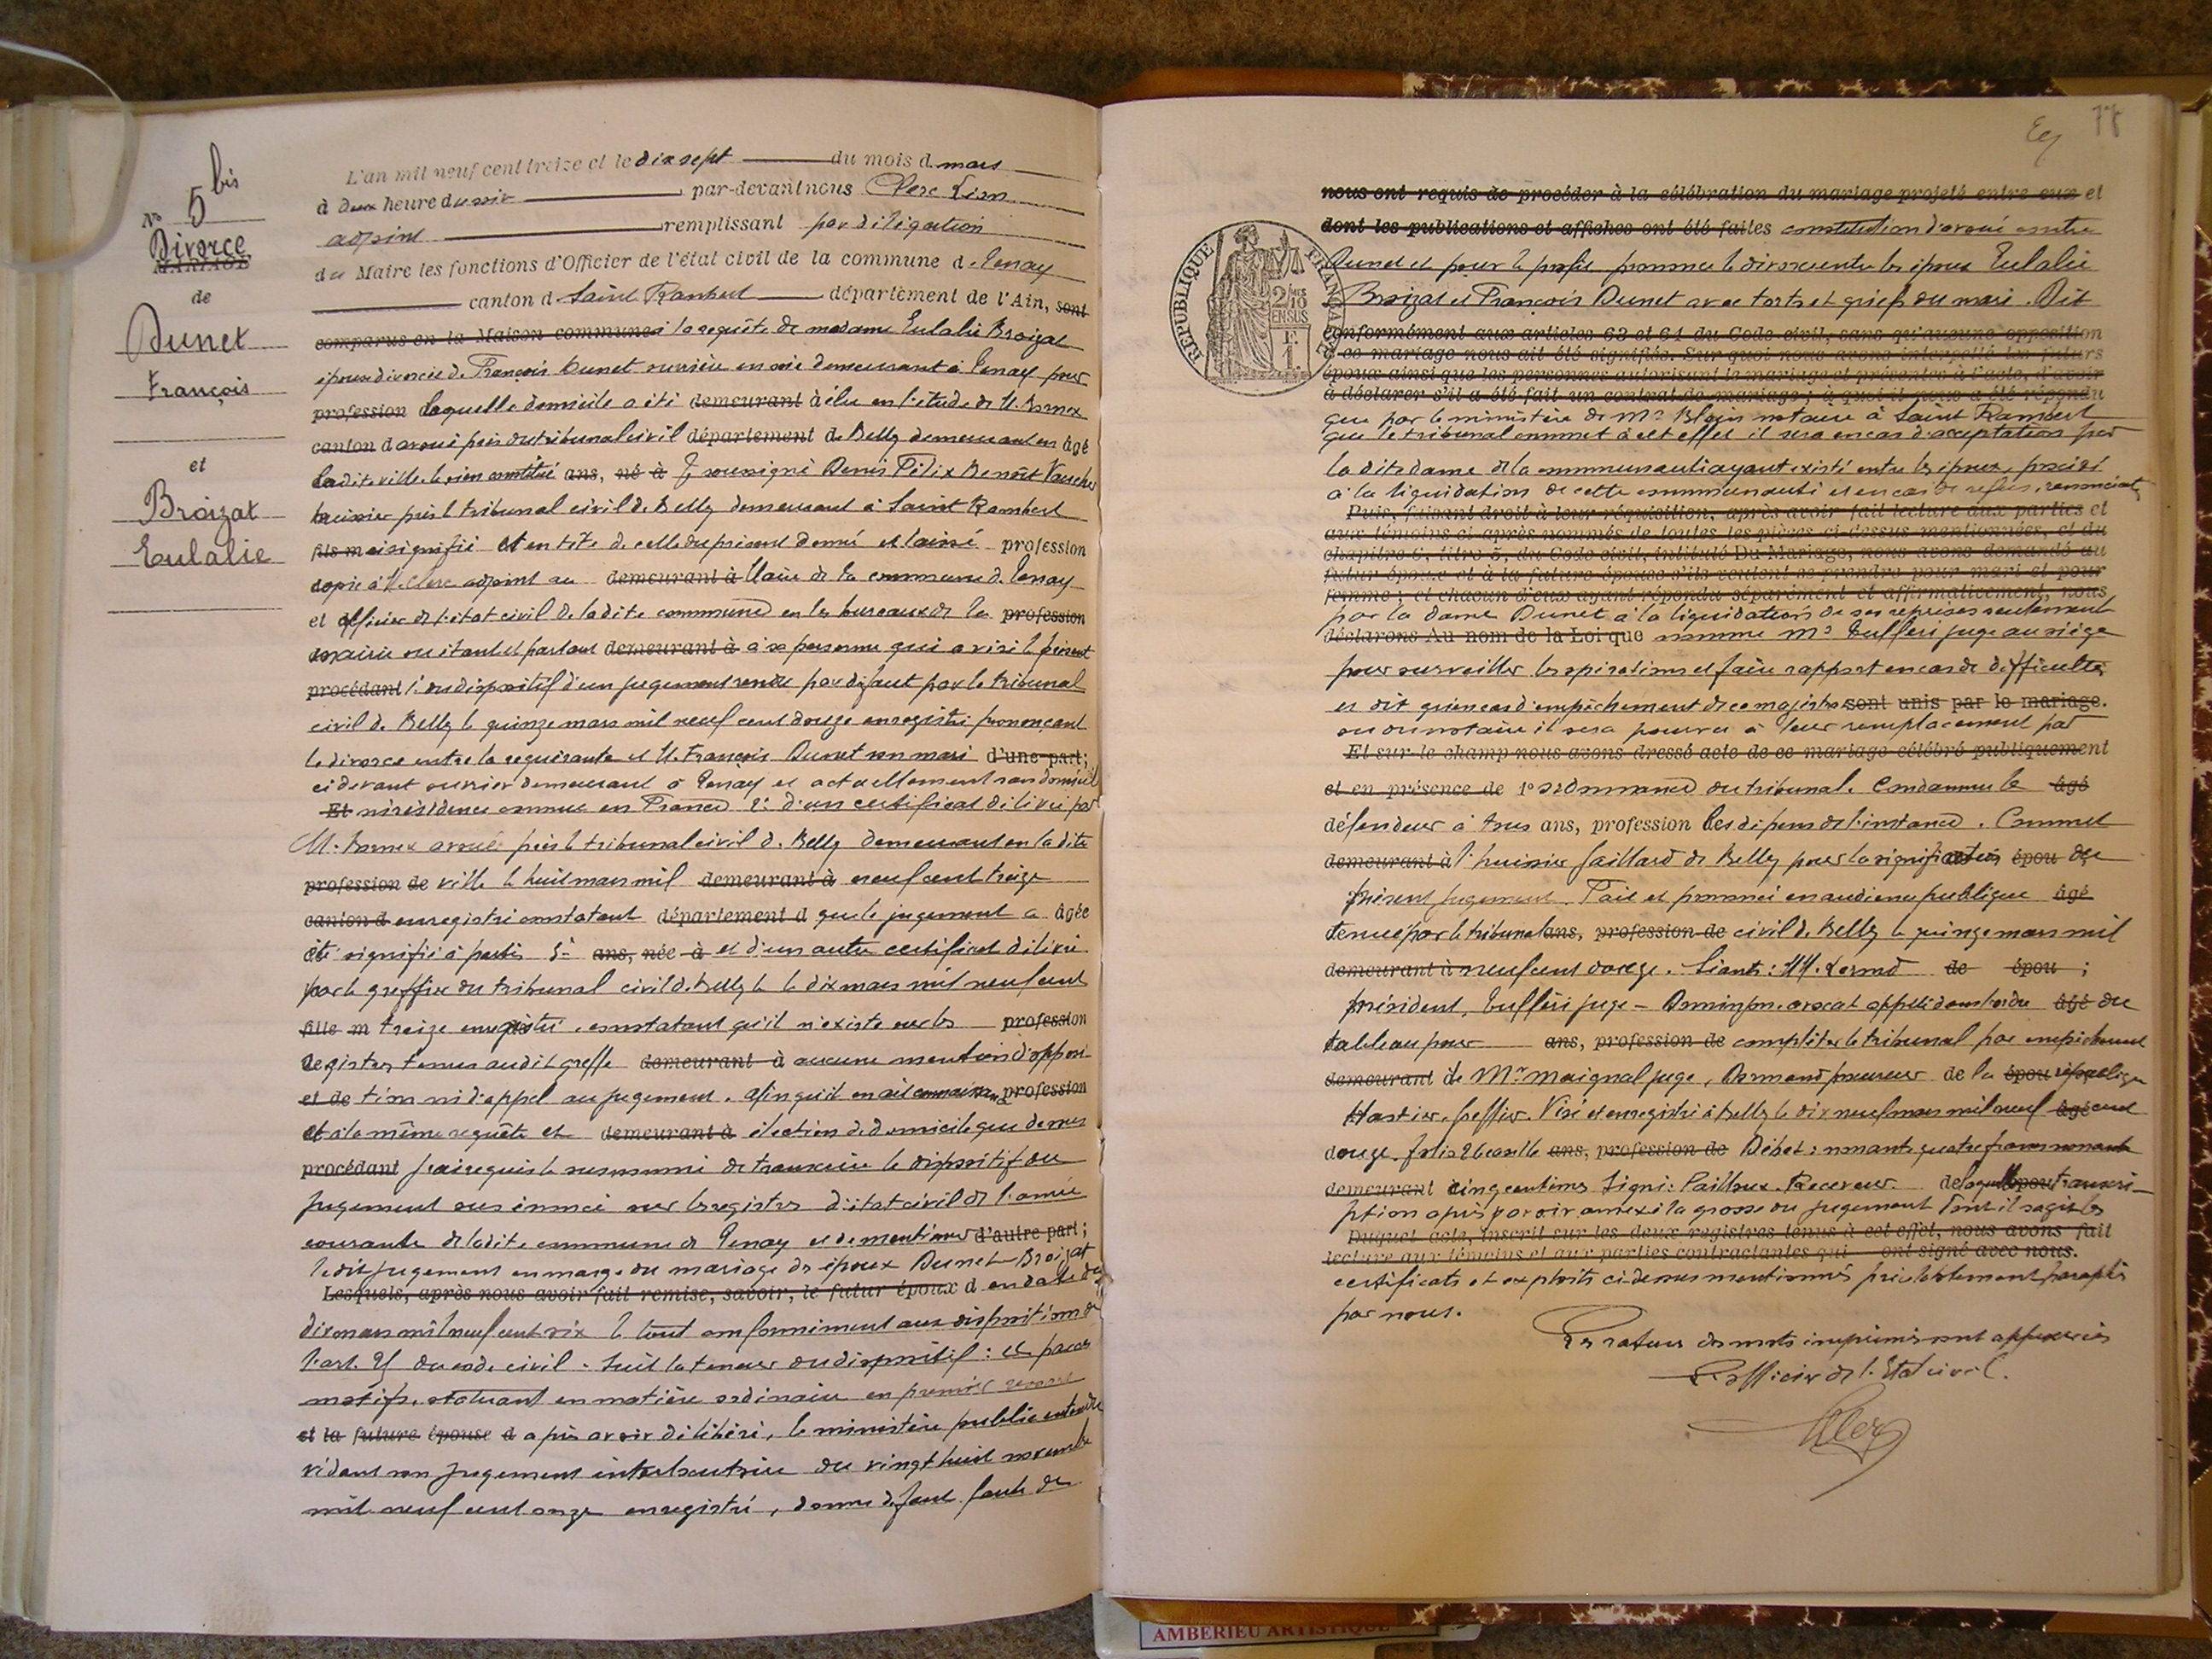 No 5 bis
Divorce
MARIAGE
de
Dunet
François
et
Broizat
Eulalie
L'an mil neuf cent treize et le dix sept du mois de mars
à deux heure du soir par-devant nous Clerc Léon
adjoint remplissant par délégation
du Maire les fonctions d'Officier de l'état civil de la commune de Tenay
canton de Saint Rambert département de l'Ain, sont
comparus en la Maison commune à la requête de madame Eulalie Broizat
épouse divorcée de François Dunet ouvrière en soie demeurant à Tenay pour
profession laquelle domicile a été demeurant à élu en l'étude de M.
canton d avoué près du tribunal civil département de Belley demeurant en âgé
ladite ville le sien constitué ans, né à Je soussigné Denis Félix Benoît
huissier près le tribunal civil de Belley demeurant à Saint Rambert
fils m ai signifié et en tête de celle du présent donné et laissé profession
copie à M. Clerc adjoint au demeurant à Maire de la commune de Tenay
et officier de l'état civil de ladite commune en les bureaux de la profession
mairie où étant et parlant demeurant à à sa personne qui a visé le présent
procédant 1° du dispositif d'un jugement rendu par défaut par le tribunal
civil de Belley le quinze mars mil neuf cent douze enregistré prononçant
le divorce entre la requérante et M. François Dunet son mari d'une part;
ci devant ouvrier demeurant à Tenay et actuellement sans domicile
Et ni résidence connus en France 2° d'un certificat délivré par
M. avoué près le tribunal civil de Belley demeurant en la dite
profession de ville le huit mars mil demeurant à neuf cent treize
canton d enregistré constatant département d que le jugement a âgée
été signifié à partie 3° ans, née à et d'un autre certificat délivré
par le greffier du tribunal civil de Belley le dix mars mil neuf cent
fille m treize enregistré, constatant qu'il n'existe sur les profession
registres tenus audit greffe demeurant à aucune mention d'opposi-
et de tion ni d'appel au jugement. afin qu'il en ait connaissance profession
et à la même requête et demeurant à élection de domicile que dessus
procédant j'ai requis le susnommé de transcrire le dispositif du
jugement sus énoncé sur les registres d'état civil de l'année
courante de ladite commune de Tenay et de mentionner d'autre part;
ledit jugement en marge du mariage des époux Dunet-Broizat
Lesquels, après nous avoir fait remise, savoir, le futur époux d en date du
dix mars mil neuf cent six le tout conformément aux dispositions de
l'art. 251 du code civil. Suit la teneur du dispositif : et par ces
motifs, statuant en matière ordinaire en premier ressort
et la future épouse d après avoir délibéré, le ministère public entendu
vidant son jugement interlocutoire du vingt huit novembre
mil neuf cent onze enregistré, donne défaut faute de
77
nous ont requis de procéder à la célébration du mariage projeté entre eux et
dont les publications et affiches ont été faites constitution d'avoué contre
Dunet et pour le profit prononce le divorce entre les époux Eulalie
Broizat et François Dunet avec torts et griefs du mari. Dit
RÉPUBLIQUE FRANÇAISE
conformément aux articles 63 et 64 du Code civil, sans qu'aucune opposition
à ce mariage nous ait été signifiée. Sur quoi nous avons interpellé les futurs
époux ainsi que les personnes autorisant le mariage et présentes à l'acte, d'avoir
à déclarer s'il a été fait un contrat de mariage; à quoi il nous a été répondu
que par le ministère de Me Blain notaire à Saint Rambert
que le tribunal commet à cet effet il sera en cas d'acceptation par
la dite dame de la communauté ayant existé entre les époux, procédé
à la liquidation de cette communauté et en cas de refus, renonciat
Puis, faisant droit à leur réquisition, après avoir fait lecture aux parties et
aux témoins ci-après nommés de toutes les pièces ci-dessus mentionnées, et du
chapitre 6, titre 5, du Code civil, intitulé Du Mariage, nous avons demandé au
futur époux et à la future épouse s'ils veulent se prendre pour mari et pour
femme ; et chacun d'eux ayant répondu séparément et affirmativement, nous
par la dame Dunet à la liquidation de ses reprises seulement
déclarons Au nom de la Loi que nomme Mr juge au siège
pour surveiller les opérations et faire rapport en cas de difficultés
et dit qu'en cas d'empêchement de ce magistrat sont unis par le mariage.
ou du notaire il sera pourvu à leur remplacement par
Et sur-le-champ nous avons dressé acte de ce mariage célébré publiquement
et en présence de 1° ordonnance du tribunal. Condamne le âgé
défendeur à tous ans, profession les dépens de l'instance. Commet
demeurant à l'huissier Gaillard de Belley pour la signification épou du
présent jugement. Fait et prononcé en audience publique âgé
tenue par le tribunal ans, profession de civil de Belley le quinze mars mil
demeurant à neuf cent douze. Séants : MM. de épou ;
président, juge - avocat appelé dans l'ordre âgé du
tableau pour ans, profession de compléter le tribunal par empêchement
demeurant de Mr Maignal juge, procureur de la épou république
greffier. Visé et enregistré à Belley le dix neuf mars mil neuf âgé cent
douze. folio 26 case 16 ans, profession de Débet : nonante quatre francs nonante
demeurant cinq centimes Signé : Pailloux. Receveur. de laquelle épou transcri-
ption après avoir annexé la grosse du jugement dont il s'agit les
Duquel acte, inscrit sur les deux registres tenus à cet effet, nous avons fait
lecture aux témoins et aux parties contractantes qui ont signé avec nous.
certificats et exploits ci dessus mentionnés préalablement paraphés
par nous.
Les ratures des mots imprimés sont approuvées
L'officier de l'Etat civil.
Clerc
AMBERIEU ARTISTIQUE